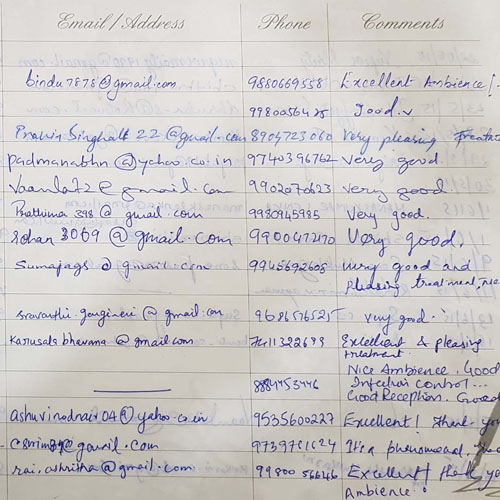 Email/Address Phone Comments
bindu7878@gmail.com 9880669558 Excellent Ambience/
9980056425 Good
Pravin Singhall 22 @gmail.com 8904723060 Very pleasing
padmanabhn @yahoo.co.in 9740396762 Very good
@gmail.com 9902070623 Very good
Prathima 398 @ gmail.com 9980945985 Very good.
rohan 3069 @gmail.com 9900472170 Very good,
Sumajags @ gmail.com 9945692608 very good and
pleasing treatment,
sravanthi.gangineni @ gmail.com 9686576525 very good.
Karusalabhavana @ gmail.com 7411322699 Excellent & pleasing
treatment.
Nice Ambience. Good
8884753446 Infection control...
Good Reception. Good
ashuvinodnair04@yahoo.co.in 9535600227 Excellent! thank you
@gmail.com 9739761624 It's a phenomenal
rai.ashritha@gmail.com 99800 56646 Excellent! thank you
Ambience